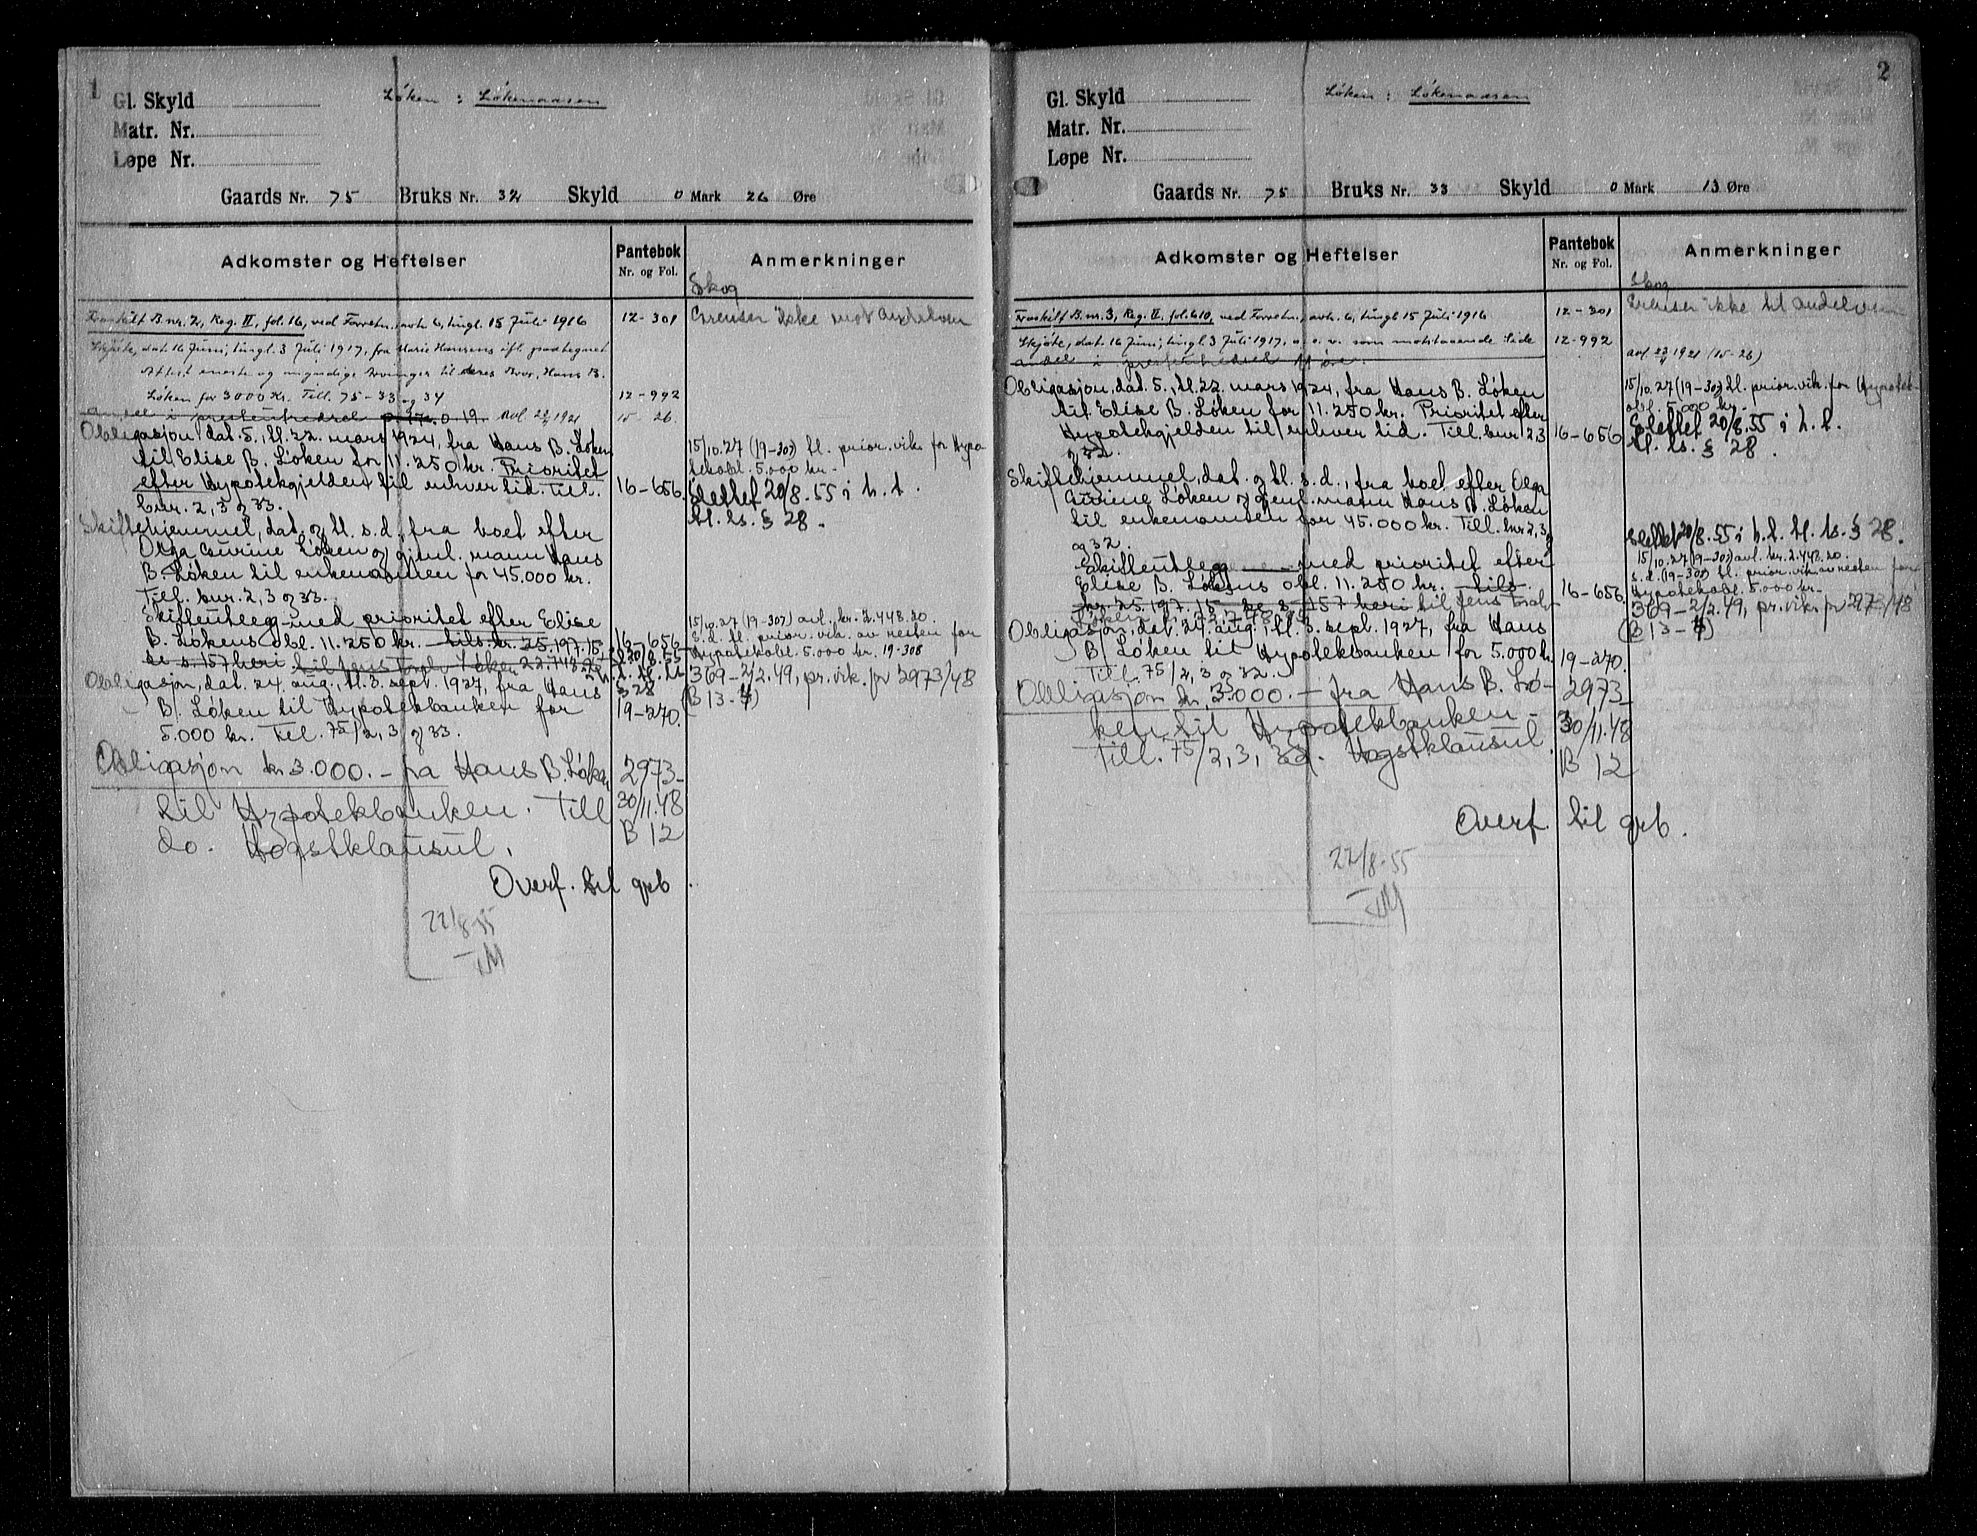 1
Gl. Skyld
Matr. Nr.
Løpe Nr.
Løken : Løkenaasen
Gaards Nr. 75 Bruks Nr. 32 Skyld 0 Mark 26 Øre
Adkomster og Heftelser
Pantebok
Nr. og Fol.
Anmerkninger
Skog
Fraskilt B.nr. 2, Reg. II, fol. 16, ved Forretn., avh. 6, tingl. 15 Juli 1916 12-301 Grenser ikke mot
Skjøte, dat. 16 Juni, tingl. 3 Juli 1917, fra Marie Hansens ifl. paategnet
Attest eneste og myndige Arvinger til deres Bror, Hans B.
Løken for 3000 Kr. Till. 75-33 og 34 12-992
Andel i 0.19. avl 1921 15-26
Obligasjon, dat. 5., tl. 22. mars 1924, fra Hans B. Løken
til Elise B. Løken for 11.250 kr. Prioritet
efter Hypotekgjelden til enhver tid. Till. 16-656.
bnr. 2, 3 og 33.
15/10.27 (19-307) tl. prior.vik. for Hypo
tekobl. 5.000 kr.-
Slettet 20/8.55 i h.t.
tl. ls. § 28.
Skiftehjemmel, dat. og tl. s.d., fra boet efter
Olga Gurine Løken og gjenl. mann Hans
B. Løken til enkemannen for 45.000 kr.
Till. bnr. 2, 3 og 33.
Skifteutlegg med prioritet efter Elise
B. Løkens obl. 11.250 kr. - tils. kr. 25.197,15, 16-656
se s. 157 heri til Jens
15/10.27 (19-307) avl. kr. 2.448.20.
s.d. tl. prior.vik. av resten for
Hypotekobl. 5.000 kr. 19-308
§ 28
369-2/2.49, pr.vik. for 2973/48
(B 13-4)
Obligasjon, dat. 24. aug., tl. 3. sept. 1927, fra Hans
B. Løken til Hypotekbanken for 19-270.
5.000 kr. Till. 75/2, 3 og 33.
Obligasjon kr 3.000.- fra Hans B. Løken 2973-
til Hypotekbanken. Till 30/11.48
do. Hogstklausul. B 12
Overf. til grb.
22/8-55
2
Gl. Skyld
Matr. Nr.
Løpe Nr.
Løken : Løkenaasen
Gaards Nr. 75 Bruks Nr. 33 Skyld 0 Mark 13 Øre
Adkomster og Heftelser
Pantebok
Nr. og Fol.
Anmerkninger
Skog
Fraskilt B.nr. 3, Reg. II, fol. 610, ved Forretn., avh. 6, tingl. 15 Juli 1916 12-301 Grenser ikke til
Skjøte, dat. 16 Juni, tingl. 3 Juli 1917, o. s. v. som motstaaende Side 12-992
Andel i
avl 1921 (15-26)
Obligasjon, dat. 5., tl. 22. mars 1924, fra Hans B. Løken
til Elise B. Løken for 11.250 kr. Prioritet efter
Hypotekgjelden til enhver tid. Till. bnr 2,3 16-656
og 32.
15/10.27 (19-307) tl. prior.vik. for Hypotek-
obl. 5.000 kr.-
Slettet 20/8.55 i h.t.
tl. ls. § 28.
Skiftehjemmel, dat. og tl. s.d., fra boet efter Olga
Gurine Løken og gjenl. mann Hans B. Løken
til enkemannen for 45.000 kr. Till. bnr 2, 3
og 32.
Skifteutlegg med prioritet efter
Elise B. Løkens obl. 11.250 kr. - tils.
kr. 25.197,15 se s. 157 heri til Jens 16-656.
Slettet 20/8.55 i h.t. tl. ls. § 28.
15/10.27 (19-307) avl. kr. 2.448.20.
s.d. (19-308) tl. prior.vik. av resten for
Hypotekobl. 5.000 kr.-
369-2/2.49, pr.vik. for 2973/48
(B 13-4)
Obligasjon, dat. 24. aug., tl. 3. sept. 1927, fra Hans
B. Løken til Hypotekbanken for 5.000 kr. 19-270.
Till. 75/2, 3 og 32.
Obligasjon kr. 3.000.- fra Hans B. Lø- 2973-
ken til Hypotekbanken- 30/11.48
Till. 75/2, 3, 32. Hogstklausul. B 12
Overf. til grb.
22/8-55